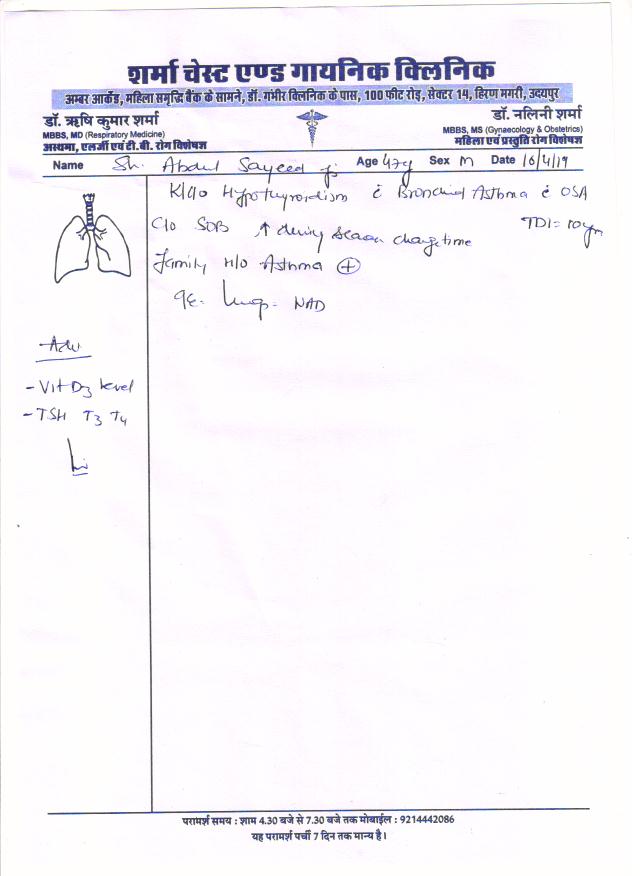 शर्मा चेस्ट एण्ड गायनिक क्लिनिक
अम्बर आर्केड, महिला समृद्धि बैंक के सामने, डॉ. गंभीर क्लिनिक के पास, 100 फीट रोड़, सेक्टर 14, हिरण मगरी, उदयपुर
डॉ. ऋषि कुमार शर्मा
MBBS, MD (Respiratory Medicine)
अस्थमा, एलर्जी एवं टी.बी. रोग विशेषज्ञ
डॉ. नलिनी शर्मा
MBBS, MS (Gynaecology & Obstetrics)
महिला एवं प्रसूति रोग विशेषज्ञ
Name Sh. Abdul Sayeed ji Age 47y Sex M Date 16/4/19
K/c/o Hypothyroidism c̄ Bronchial Asthma c̄ OSA
C/o SOB ↑ during season change time TDI = 10 yrs
Family H/o Asthma ⊕
Lung - NAD
Adv
- Vit D3 level
- TSH T3 T4
परामर्श समय : शाम 4.30 बजे से 7.30 बजे तक मोबाईल : 9214442086
यह परामर्श पर्ची 7 दिन तक मान्य है।